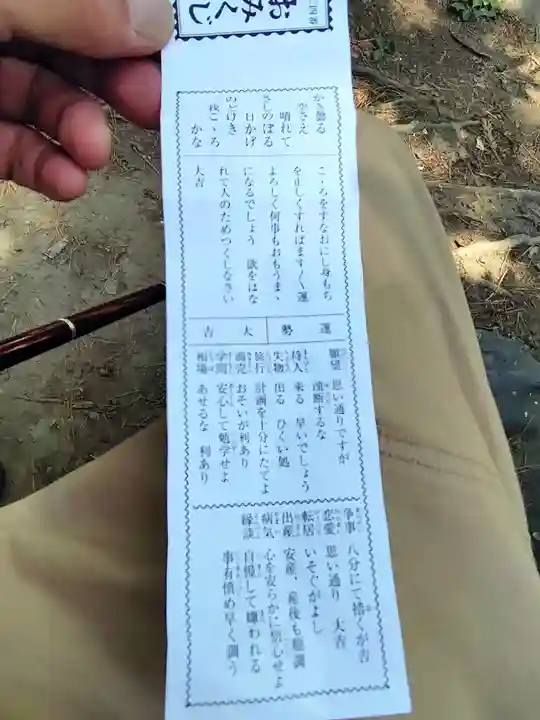 おみくじ
かき曇る
空さえ
晴れて
さしのぼる
日かげ
のどけき
我こゝろ
かな
こゝろをすなおにし身もち
を正しくすればます〱運
よろしく何事もおもうまゝ
になるでしょう 欲をはな
れて人のためつくしなさい
大吉
運勢 大吉
願望 思い通りですが
油断するな
待人 来る 早いでしょう
失物 出る ひくい処
旅行 計画を十分にたてよ
商売 おそいが利あり
学問 安心して勉学せよ
相場 あせるな 利あり
争事 八分にて捨くが吉
恋愛 思い通り 大吉
転居 いそぐがよし
出産 安産、産後も順調
病気 心を安らかに信心せよ
縁談 自慢して嫌われる
事有慎め早く調う